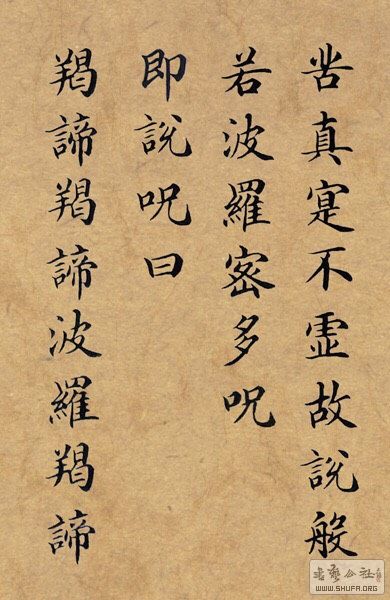 苦真寔不虛故說般
若波羅密多呪
即說呪曰
羯諦羯諦波羅羯諦
書藝公社
WWW.SHUFA.ORG